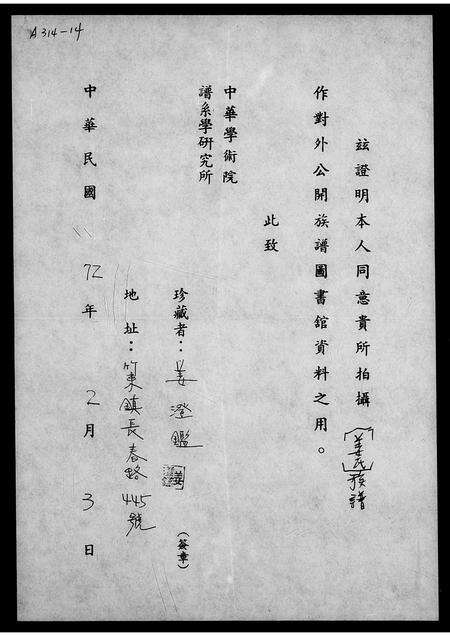 A314-14
玆證明本人同意貴所拍攝〔姜氏〕族譜
作對外公開族譜圖書舘資料之用。
此致
中華學術院
譜系學研究所
珍藏者：姜澄鑑（簽章）
地址：竹東鎮長春路445號
中華民國72年2月3日